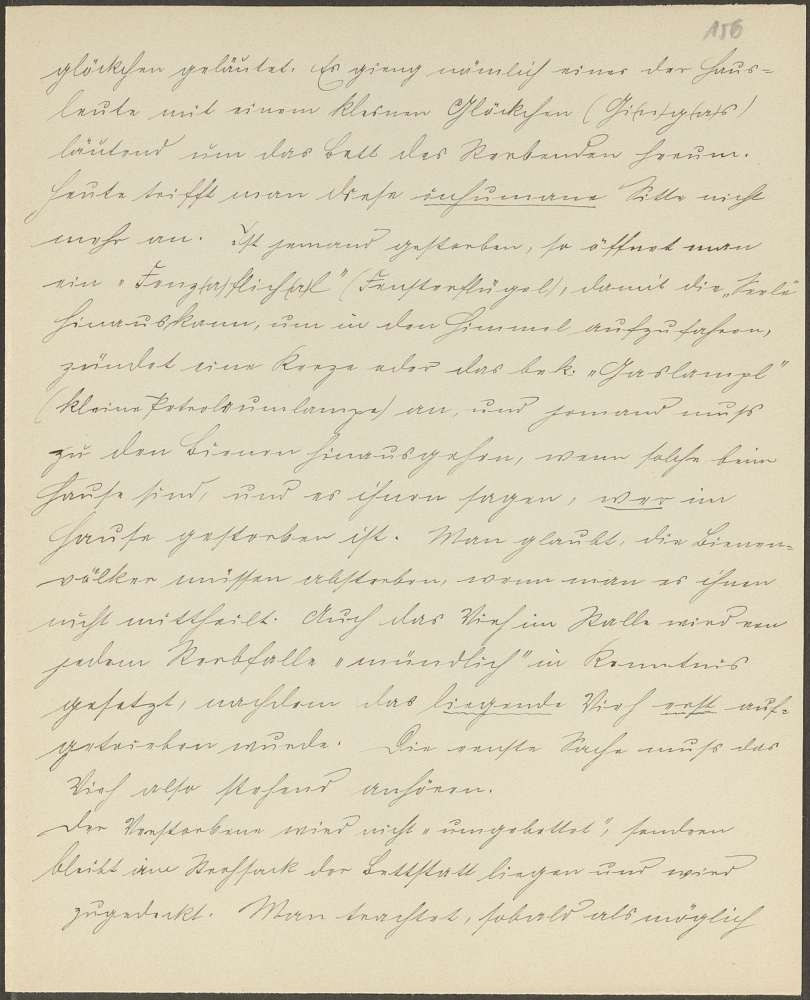 156
glöckchen geläutet. Es gieng nämlich eines der Haus-
leute mit einem kleinen Glöckchen (
läutend um das Bett des Sterbenden herum.
Heute trifft man diese inhumane Sitte nicht
mehr an. Ist jemand gestorben, so öffnet man
ein (Fensterflügel), damit die „Seele“
hinauskann, um in den Himmel aufzufahren,
zündet eine Kerze oder das bek. „Gaslampl“
(kleine Petroleumlampe) an, und jemand muß
zu den Bienen hinausgehen, wenn solche beim
Hause sind, und es ihnen sagen, wer im
Hause gestorben ist. Man glaubt, die Bienen-
völker müssen absterben, wenn man es ihnen
nicht mittheilt. Auch das Vieh im Stalle wird von
jedem Sterbfalle „mündlich“ in Kenntnis
gesetzt, nachdem das liegende Vieh erst auf-
getrieben wurde. Die ernste Sache muß das
Vieh also stehend anhören.
Der Verstorbene wird nicht „umgebettet“, sondern
bleibt im Strohsack der Bettstatt liegen und wird
zugedeckt. Man trachtet, sobald als möglich